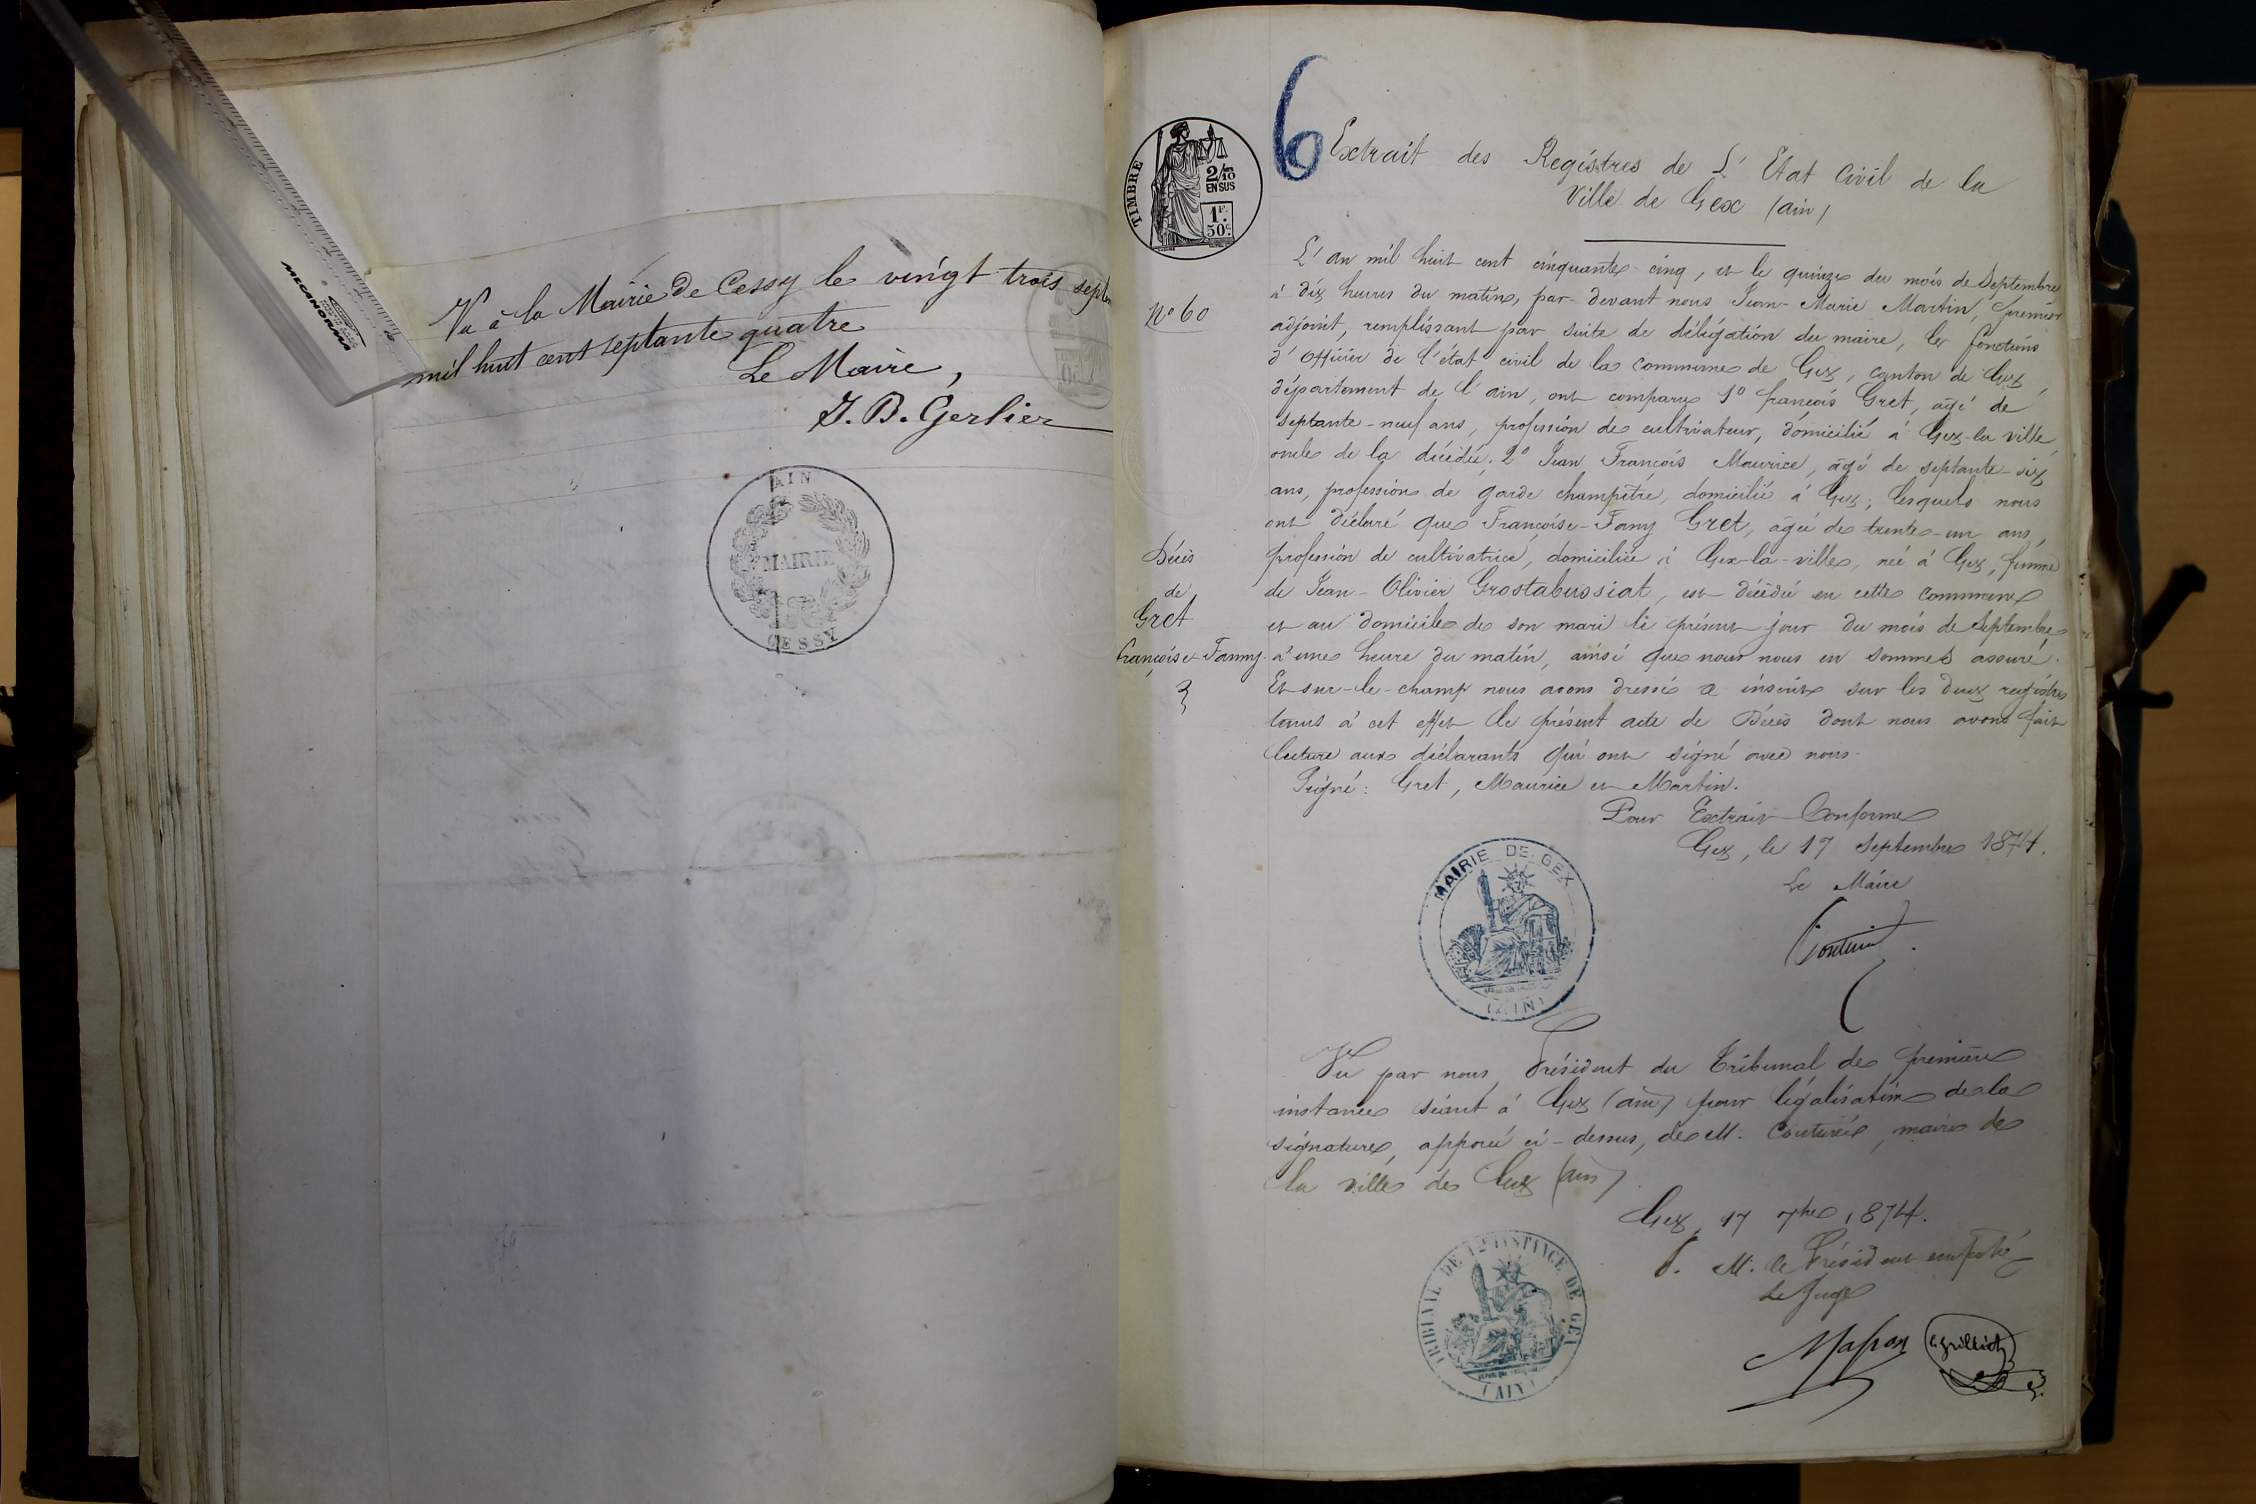 MECANORMA
Vu à la Mairie de Cessy le vingt trois septbre
mil huit cent septante quatre
Le Maire,
J. B. Gerlier
AIN
MAIRIE
CESSY
6
TIMBRE
2/10 EN SUS
1F. 50c.
Extrait des Registres de L'Etat Civil de la
Ville de Gex (ain)
L'an mil huit cent cinquante-cinq, et le quinze du mois de Septembre
N° 60
à dix heures du matin, par-devant nous Jean-Marie Martin, premier
adjoint, remplissant par suite de délégation du maire, les fonctions
d'Officier de l'état civil de la commune de Gex, canton de Gex,
département de l'ain, ont comparu 1° françois Gret, agé de
septante-neuf ans, profession de cultivateur, domicilié à Gex-la-ville,
oncle de la décédée. 2° Jean François Maurice, agé de septante-six
ans, profession de garde champêtre, domicilié à Gex; lesquels nous
ont déclaré que Françoise-Fany Gret, agée de trente-un ans,
Décès
de
Gret
françoise Fanny
profession de cultivatrice, domiciliée à Gex-la-ville, née à Gex, femme
de Jean-Olivier Grostabussiat, est décédée en cette commune
et au domicile de son mari le présent jour du mois de Septembre,
à une heure du matin, ainsi que nous nous en sommes assuré.
Et sur-le-champ nous avons dressé a inscrire sur les deux registres
tenus à cet effet le présent acte de Décès dont nous avons fait
lecture aux déclarants qui ont signé avec nous.
Signé: Gret, Maurice et Martin.
Pour Extrait Conforme
Gex, le 17 Septembre 1874.
Le Maire
MAIRIE DE GEX
(AIN)
Vu par nous, Président du Tribunal de première
instance séant à Gex (ain) pour légalisation de la
signature, apposée ci-dessus, de M. , maire de
la ville de Gex (ain).
Gex, 17 7bre 1874.
P. M. le Président empêché
Le Juge
TRIBUNAL DE 1RE INSTANCE DE GEX
(AIN)